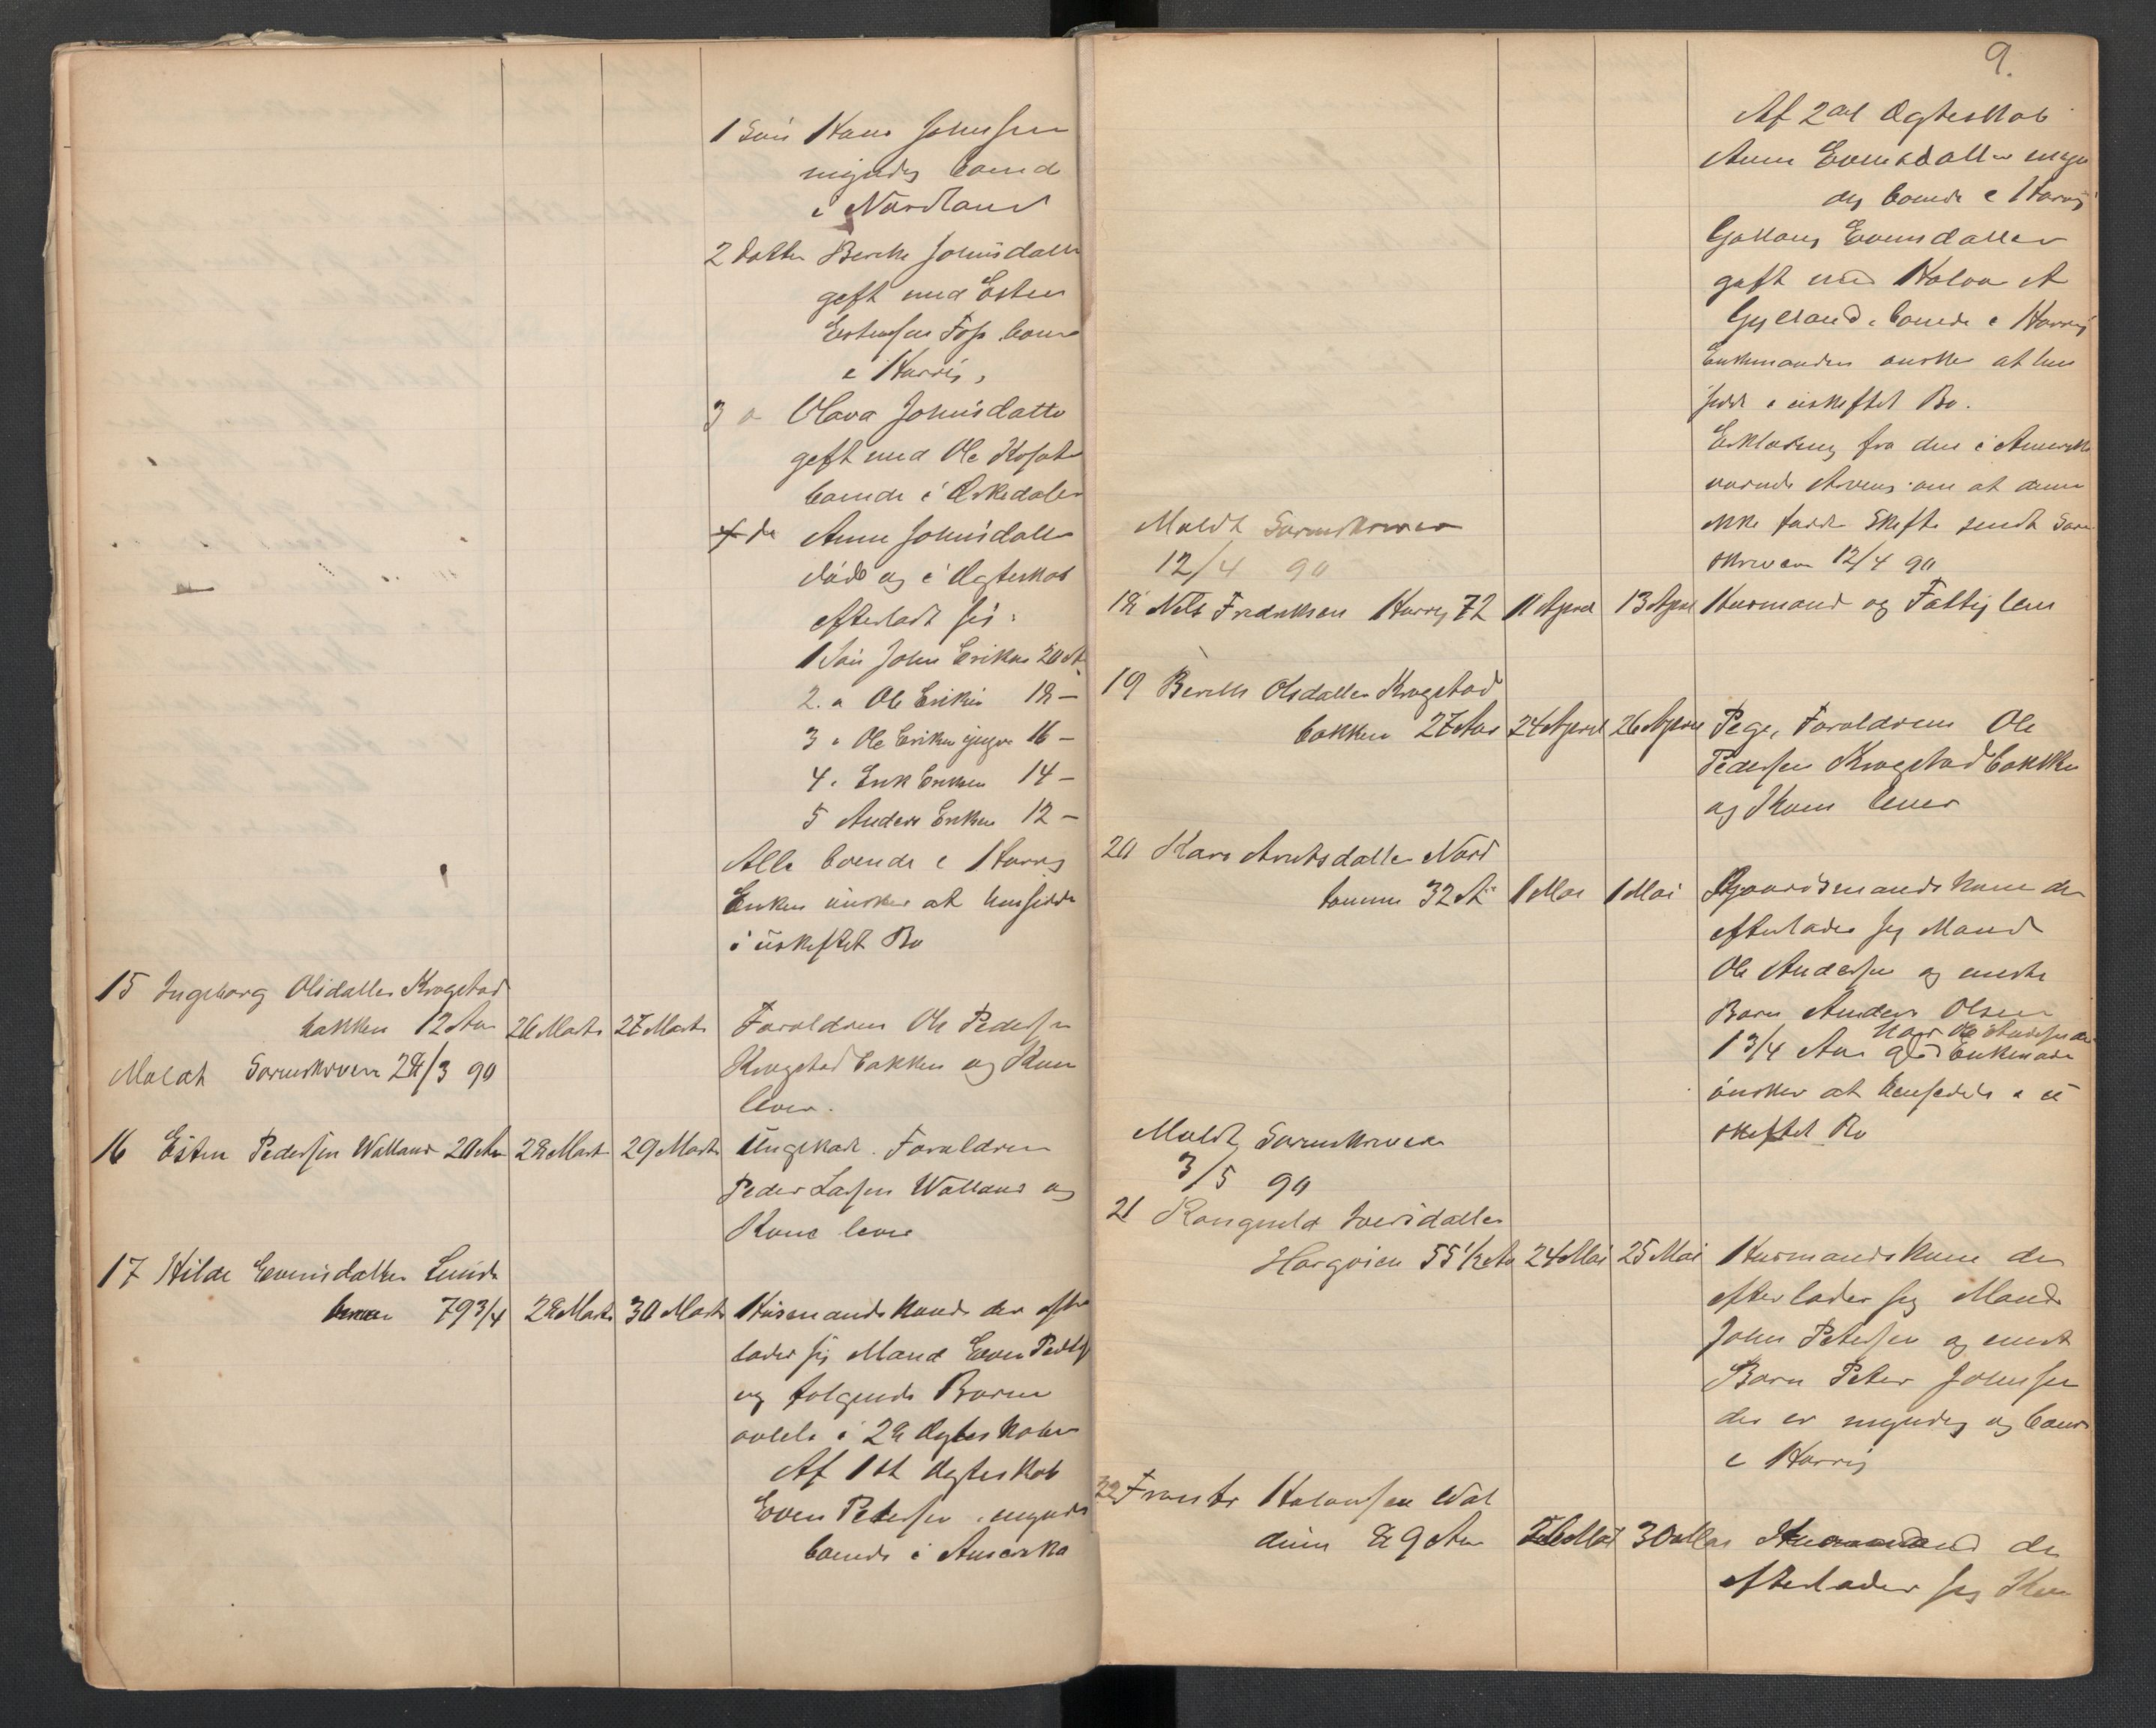 1 Sön Hans Johnsen
myndig boend
i Nordland
2 Datter Berthe Johnsdatter
geft med Esten
Estensen Foss boende
i Horrig,
3 " Olava Johnsdatter
geft med Ole
boende i Orkedalen
4 do Anne Johnsdatter
död og i Ægteskab
efterladt sig:
1 Sön John Eriksen 20 A
2. " Ole Eriksen 18 -
3 " Ole Eriksen yngre 16 -
4. Erik Eriksen 14 -
5 Anders Eriksen 12 -
Alle boende i Horrig
Enken önsker at hensidde
i uskiftet Bo
15 Ingeborg Olsdatter Krogstad
bakken 12 Aar 26 Marts 27 Marts Foraldrene Ole Pedersen
Krogstadbakken og Kone
lever.
Meldt Sorenskriveren 28/3 90
16 Esten Pedersen Walland 20 Aar 28 Marts 29 Marts Ungekarl. Foraldrene
Peder Larsen Walland og
Kone lever
17 Hilde Evensdatter Lunde
79 3/4 28 Marts 30 Marts Husmandskone der efter
lader sig Mand Even Peders
og folgende Born
avlet i 2 Ægteskaber
Af 1st Ægteskab
Even Petersen, myndig
boende i Amerika
9.
Af 2det Ægteskab
Anne Evensdatter myn
dig boende i Horrig
Evensdatter
geft med Haldor A
boende i Horrig
Enkemanden onsker at hen
sidde i uskiftet Bo.
Erklæring fra den i Amerika
værende Arving om at denne
ikke Skifte sendt Soren
skriveren 12/4 90
Meldt Sorenskriveren
12/4 90
18 Nels Fredriksen Horrig 72 11 April 13 April Husmand og Fattiglem
19 Berith Olsdatter Krogstad
bakken 27 Aar 24 April 26 April Pige, Foraldrene Ole
Pedersen Krogstadbakken
og Kone lever
20 Kari Arntsdatter Nord
tomme 32 A 1 Mai 1 Mai Gaardsmandskone der
efterlader sig Mand
Ole Andersen og eneste
Barn Anders Olsen
1 3/4 Aar Enkemanden
önsker at hensidde i u
skiftet Bo
Meldt Sorenskriveren
3/5 90
21 Rangnild Iversdatter
Hargvien 55 1/2 Aar 24 Mai 25 Mai Husmandskone der
efterlader sig Mand
John Petersen og enest
Barn Peter Johnsen
der er myndig og boende
i Horrig
22 Halvorsen Wol
89 Aar Mai 30 Mai Husmand der
efterlader sig Kone